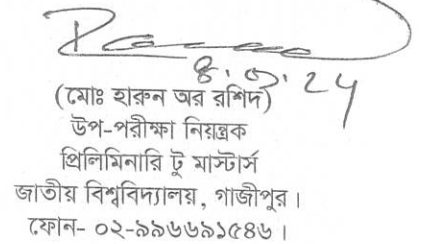 (মোঃ হারুন অর রশিদ)
উপ-পরীক্ষা নিয়ন্ত্রক
প্রিলিমিনারি টু মাস্টার্স
জাতীয় বিশ্ববিদ্যালয়, গাজীপুর।
ফোন- ০২-৯৯৬৬৯১৫৪৬।